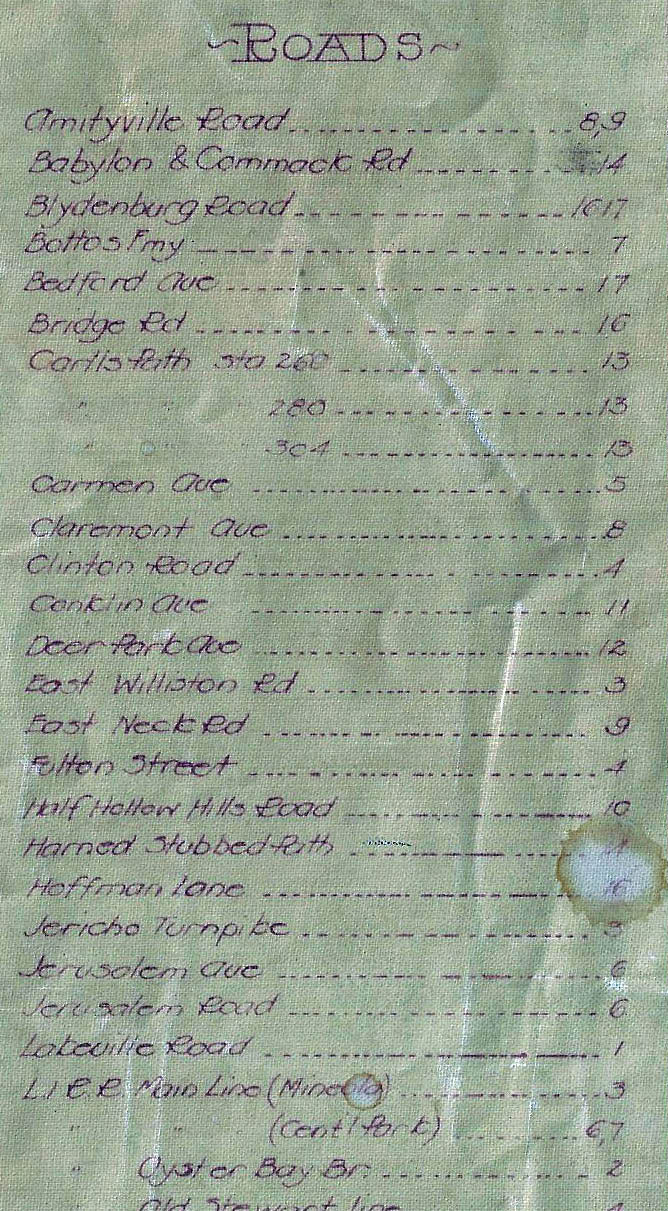 ~ROADS~
Amityville Road 8,9
Babylon & Commack Rd 14
Blydenburg Road 16 17
Bottos Fmy 7
Bedford Ave 17
Bridge Rd 16
Carlls Path sta 260 13
" " 280 13
" " 304 13
Carmen Ave 5
Claremont Ave 8
Clinton Road 4
Conklin Ave 11
Deer Park Ave 12
East Williston Rd 3
East Neck Rd 9
Fulton Street 4
Half Hollow Hills Road 10
Harned Stubbed Path
Hoffman Lane 16
Jericho Turnpike 3
Jerusalem Ave 6
Jerusalem Road 6
Lakeville Road 1
L I R.R. Main Line (Mineola) 3
" " (Cent'l Park) 6,7
" Oyster Bay Br. 2
Old Stewart line 4